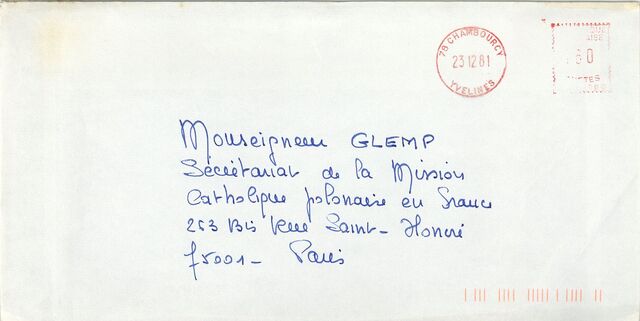 78 CHAMBOURCY
23 12 81
YVELINES
Monseigneur GLEMP
Sécrétariat de la Mission
Catholique polonaise en France
263 Bis Rue Saint-Honoré
75001 - Paris